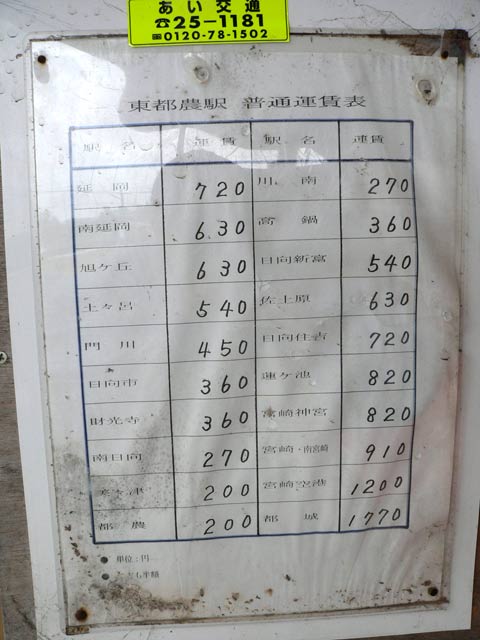 あい交通
☎25-1181
0120-78-1502
東都農駅 普通運賃表
駅名 運賃 駅名 運賃
延岡 720 川南 270
南延岡 630 高鍋 360
旭ケ丘 630 日向新富 540
土々呂 540 佐土原 630
門川 450 日向住吉 720
日向市 360 蓮ケ池 820
財光寺 360 宮崎神宮 820
南日向 270 宮崎・南宮崎 910
美々津 200 宮崎空港 1200
都農 200 都城 1770
● 単位:円
● 半額